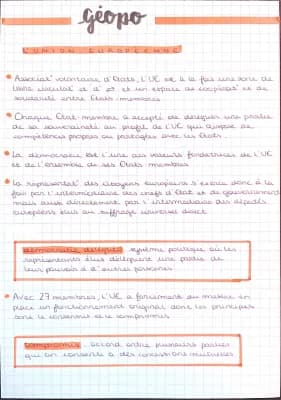 géopo
L'UNION EUROPÉENNE
Associat° volontaire d'États, l'UE est à la fois une zone de
libre circulat° et d' et un espace de coopérat° et de
solidarité entre États-membres
Chaque État-membre a accepté de déléguer une partie
de sa souveraineté au profit de l'UE qui dispose de
compétences propres ou partagées avec les États.
La démocratie est l'une des valeurs fondatrices de l'UE
et de l'ensemble de ses États membres
La représentat° des citoyens européens s'exerce donc à la
fois par l'intermédiaire des chefs d'État et de gouvernement
mais aussi directement par l'intermédiaire des députés
européens élus au suffrage universel direct
démocratie déléguée : système politique où les
représentants élus délèguent une partie de
leur pouvoirs à d'autres personnes
Avec 27 membres, l'UE a forcément du mettre en
place un fonctionnement original dont les principes
sont le consensus et le compromis
Compromis : accord entre plusieurs parties
qui on consenti à des concessions mutuelles